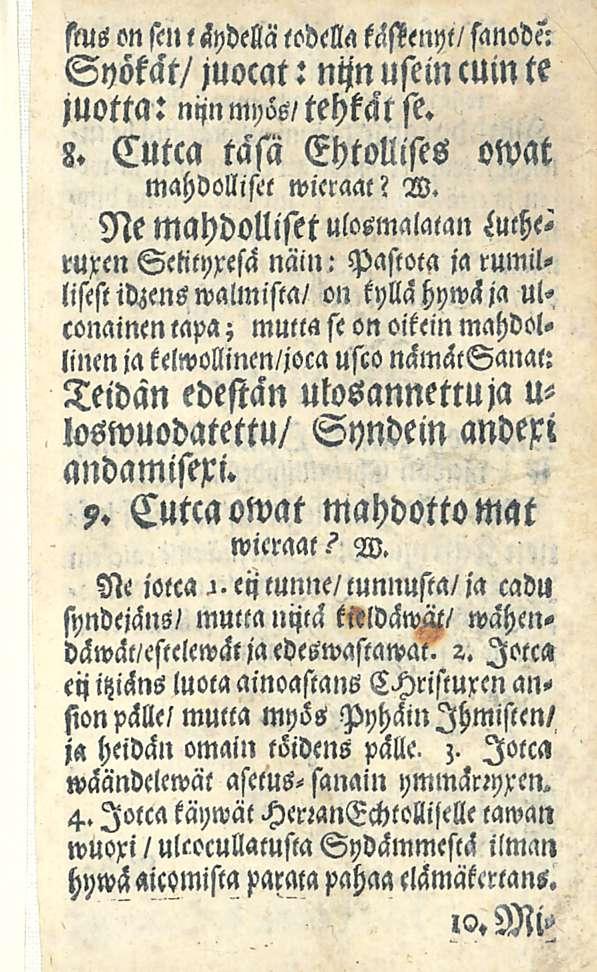 stus on sen täydellä todella käskenyt/ sanodẽ:
Syökät/ juocat: nijn usein cuin te
juotta: nijn myös/ tehkät se.
8. Cutca täsä Ehtollises owat
mahdolliset wieraat? W.
Ne mahdolliset ulosmalatan Luthe-
ruxen Selityxesä näin: Pastota ja rumil-
lisest idzens walmista/ on kyllä hywä ja ul-
conainen tapa; mutta se on oikein mahdol-
linen ja kelwollinen/joca usco nämät Sanat:
Teidän edestän ulosannettu ja u-
loswuodatettu/ Syndein andexi
andamisexi.
9. Cutca owat mahdottomat
wieraat? W.
Ne jotca 1. eij tunne/ tunnusta/ ja cadu
syndejäns/ mutta nijtä kieldäwät/ wähen-
däwät/estelewät ja edeswastawat. 2. Jotca
eij itziäns luota ainoastans CHristuxen an-
sion pälle/ mutta myös Pyhäin Ihmisten/
ja heidän omain töidens pälle. 3. Jotca
wäändelewät asetus-sanain ymmärryxen.
4. Jotca käywät HerranEchtolliselle tawan
wuoxi / ulcocullatusta Sydämmestä ilman
hywä aicomista parata pahaa elämäkertans.
10. Mi-